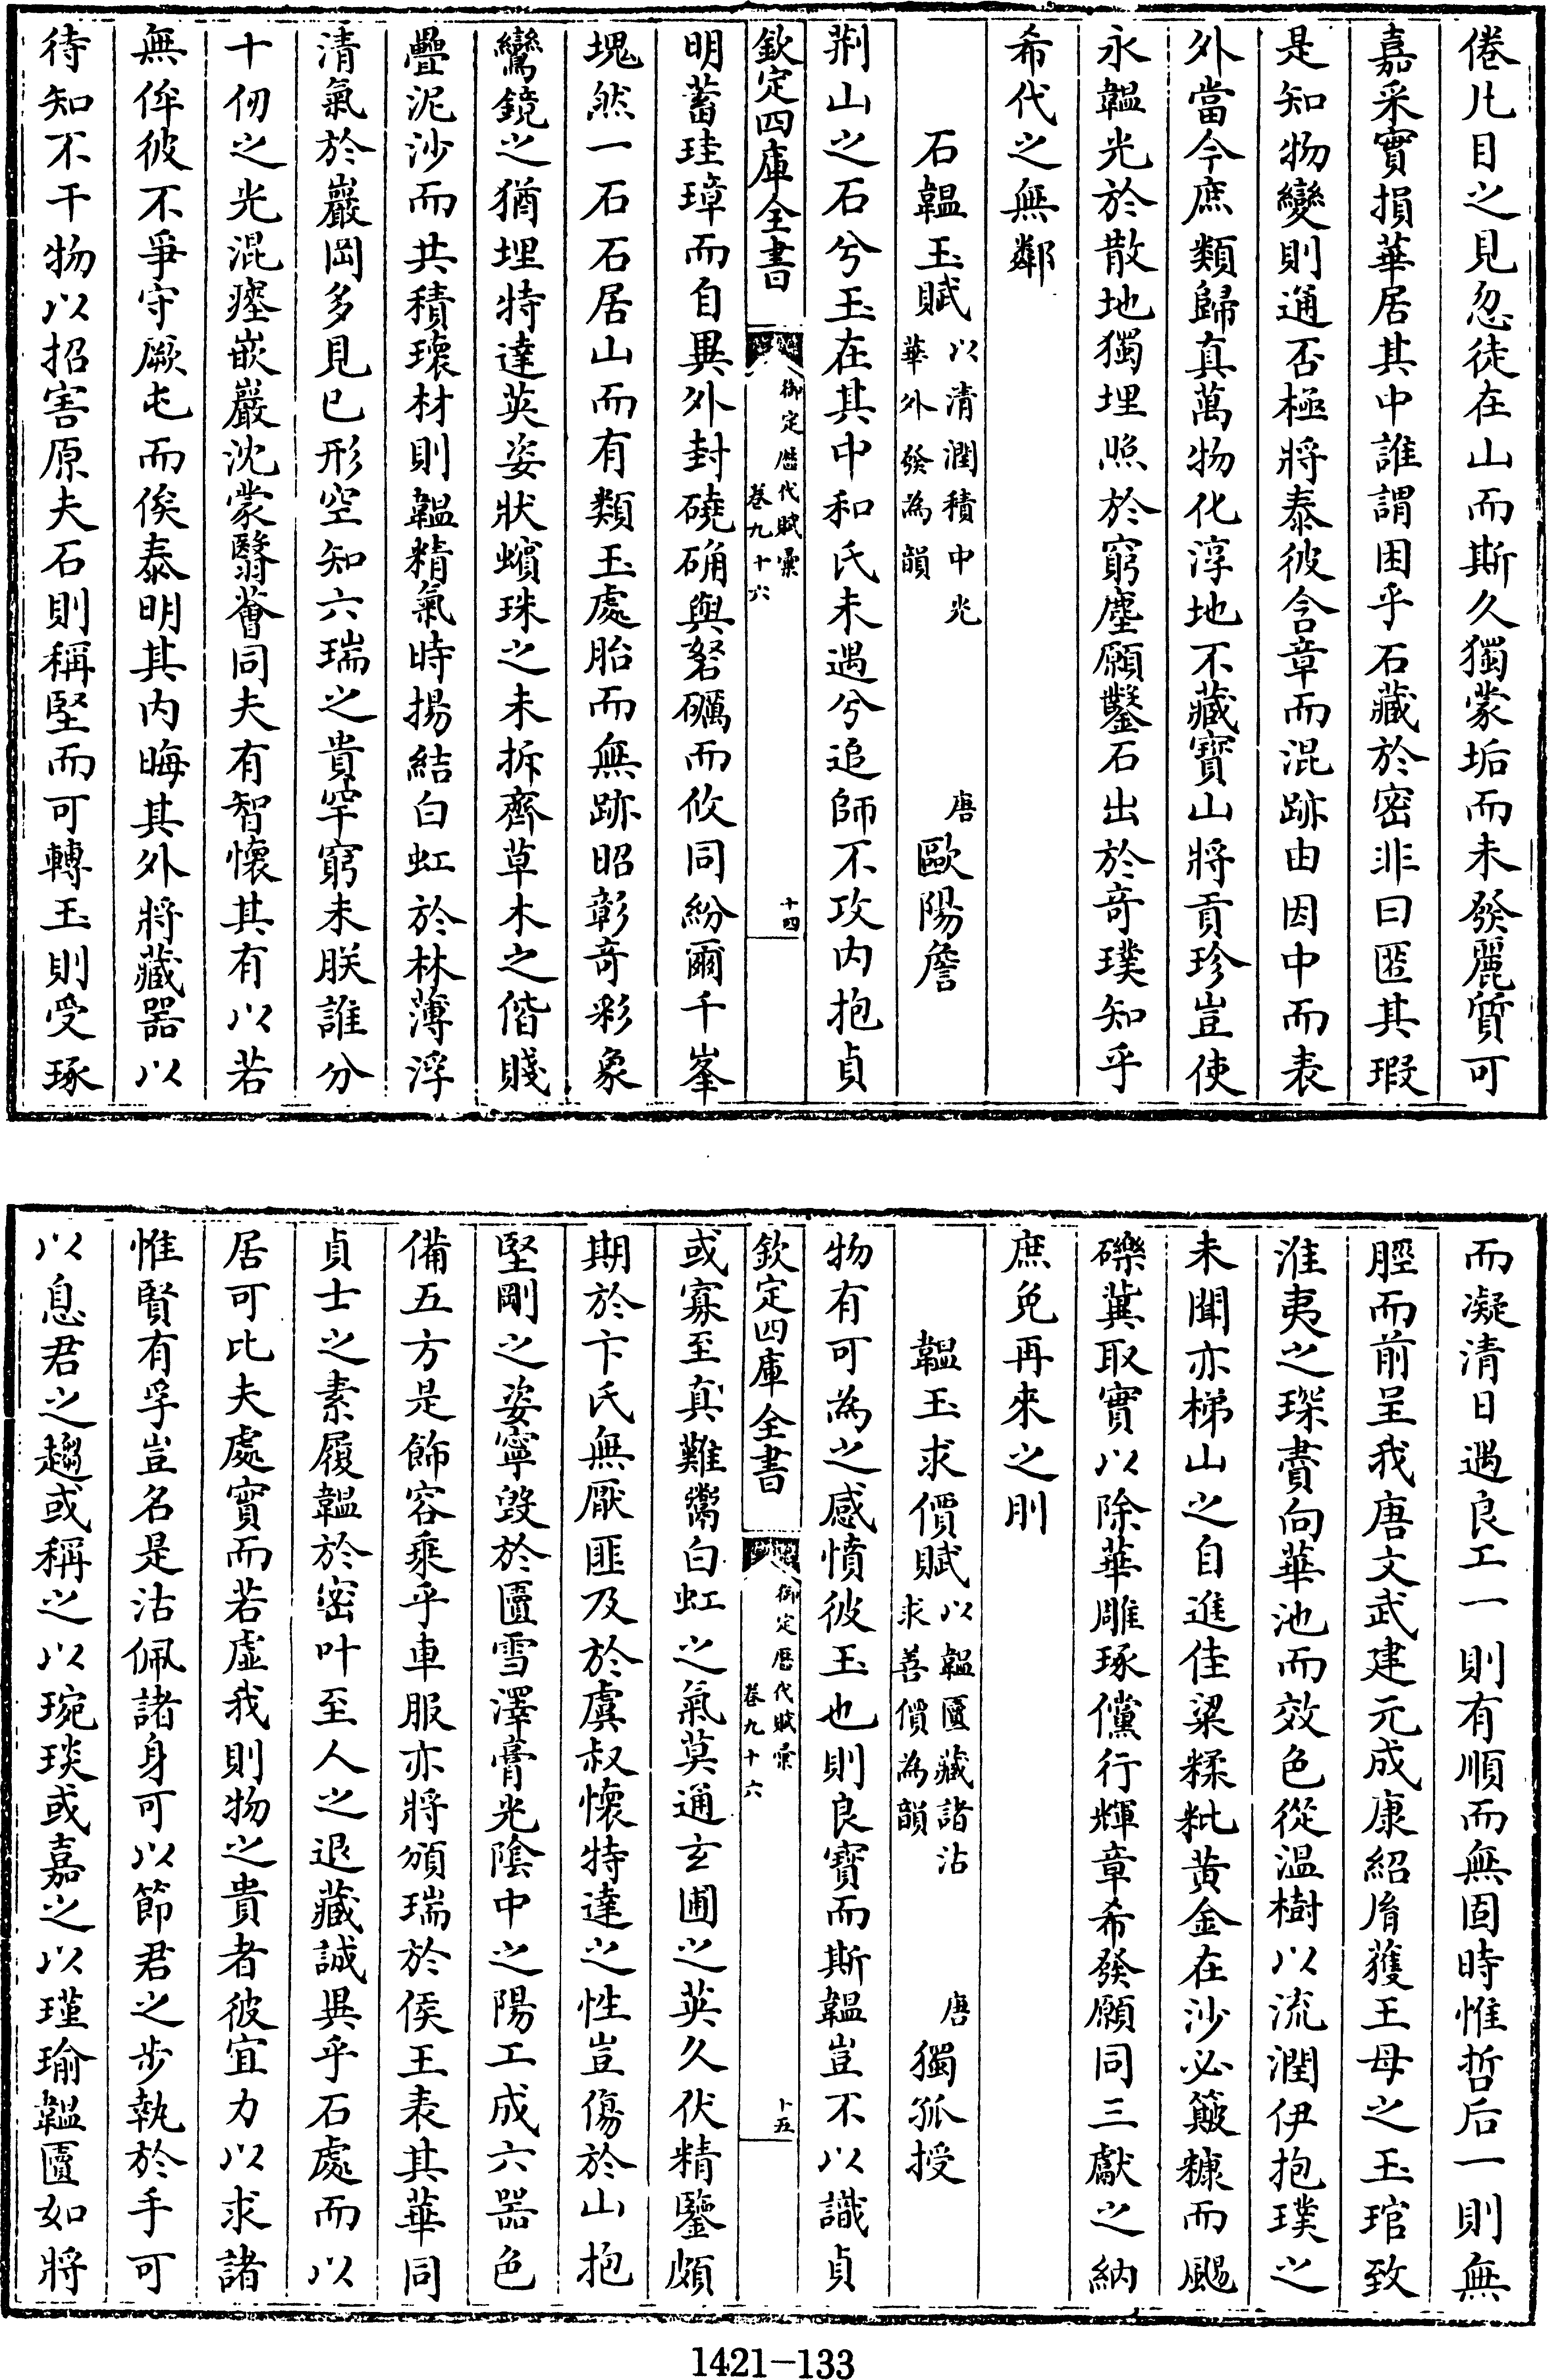 倦凡目之見忽徒在山而斯久獨蒙垢而未發麗質可
嘉采實損華居其中誰謂困乎石藏於密非曰匿其瑕
是知物變則通否極將泰彼含章而混跡由因中而表
外當今庶類歸真萬物化淳地不藏寶山將貢珍豈使
永韞光於散地獨埋照於窮塵願鑿石出於奇璞知乎
希代之無鄰
石韞玉賦以清潤積中光華外發為韻 唐歐陽詹
荆山之石兮玉在其中和氏未遇兮追師不攻内抱貞
欽定四庫全書 御定歴代賦彙卷九十六 十四
明蓄珪璋而自異外封磽确與砮礪而攸同紛爾千峯
塊然一石石居山而有類玉處胎而無跡昭彰奇彩象
鸞鏡之猶埋特達英姿狀蠙珠之未拆齊草木之偕賤
疊泥沙而共積瓌材則韞精氣時揚結白虹於林薄浮
清氣於巖岡多見已形空知六瑞之貴罕窮未朕誰分
十仞之光混瘞嵌巖沈蒙翳薈同夫有智懷其有以若
無侔彼不爭守厥屯而俟泰明其内晦其外將藏器以
待知不干物以招害原夫石則稱堅而可轉玉則受琢
而凝清日遇良工一則有順而無固時惟哲后一則無
脛而前呈我唐文武建元成康紹胤獲王母之玉琯致
淮夷之琛賮向華池而效色從温樹以流潤伊抱璞之
未聞亦梯山之自進佳粱糅粃黄金在沙必簸糠而颺
礫冀取實以除華雕琢儻行輝章希發願同三獻之納
庶免再來之刖
韞玉求價賦以韞匵藏諸沽求善價為韻 唐獨孤授
物有可為之感憤彼玉也則良寳而斯韞豈不以識貞
欽定四庫全書 御定歴代賦彙卷九十六 十五
或寡至真難鬻白虹之氣莫通玄圃之英久伏精鑒頗
期於卞氏無厭匪及於虞叔懷特達之性豈傷於山抱
堅剛之姿寧毁於匵雪澤膏光陰中之陽工成六器色
備五方是飾容乘乎車服亦將頒瑞於侯王表其華同
貞士之素履韞於密叶至人之退藏誠異乎石處而以
居可比夫處實而若虛我則物之貴者彼宜力以求諸
惟賢有孚豈名是沽佩諸身可以節君之步執於手可
以息君之趨或稱之以琬琰或嘉之以瑾瑜韞匵如將
1421—133